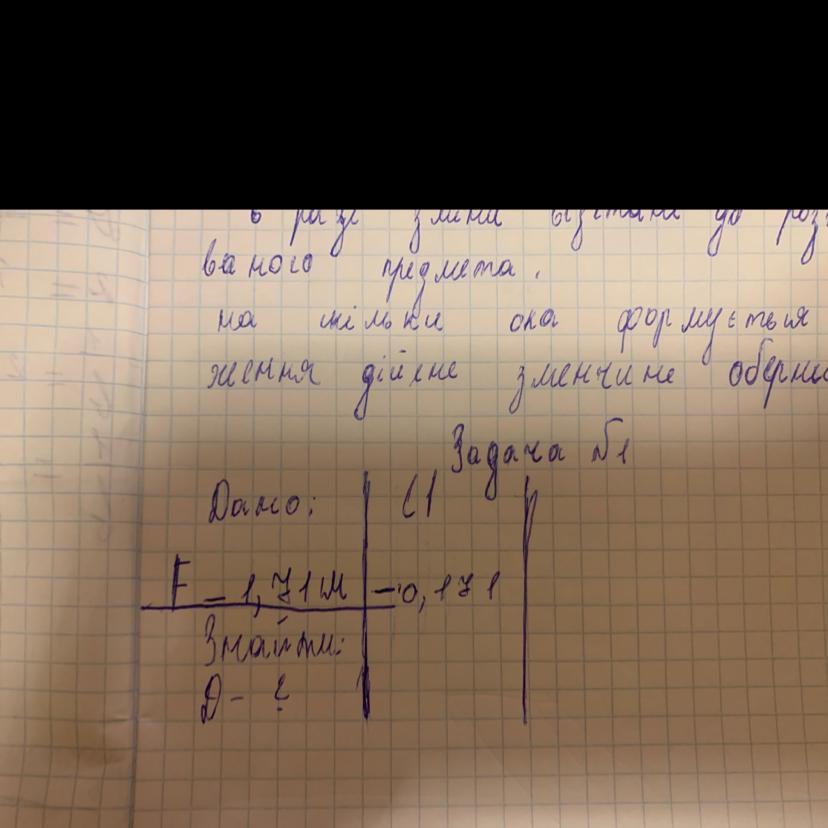 в разі зміни відстані до роз
ваного предмета.
на сітківці ока формується
ження дійсне зменчине оберн
Задача №1
Дано: СІ
F = 1,71 м - 0,171
Знайти:
D - ?